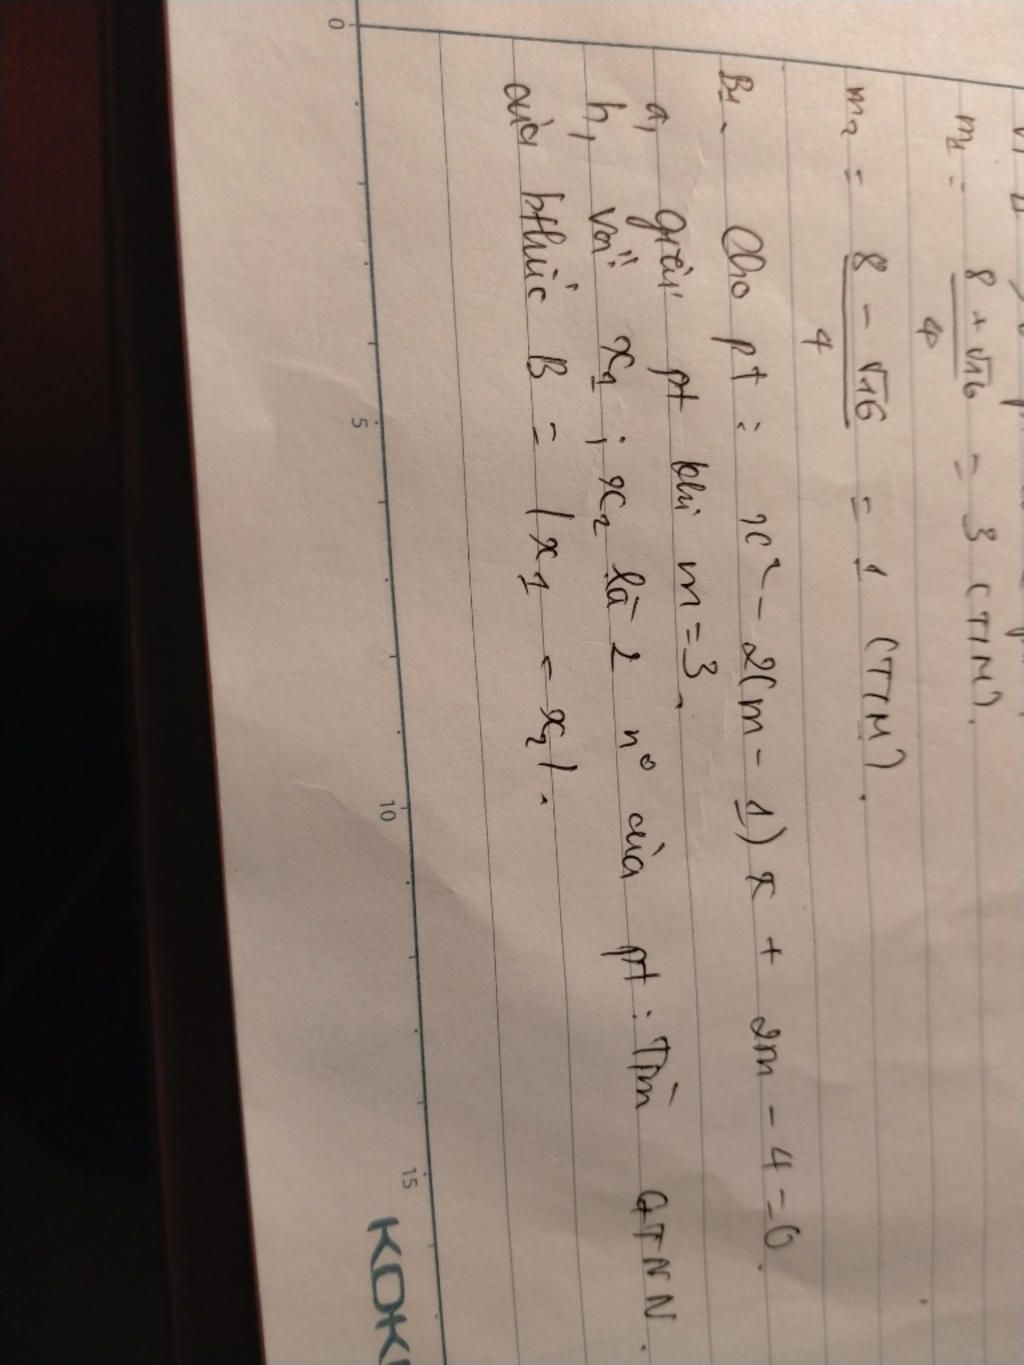 m₁ = 8 + √16 / 4 = 3 (T/M).
m₂ = 8 - √16 / 4 = 1 (T/M).
B₁. Cho pt : x² - 2(m - 1)x + 2m - 4 = 0.
a, giải pt khi m = 3.
b, Với x₁ ; x₂ là 2 n⁰ của pt. Tìm GTNN
của bthức B = |x₁ - x₂|.
0 5 10 15
KOK